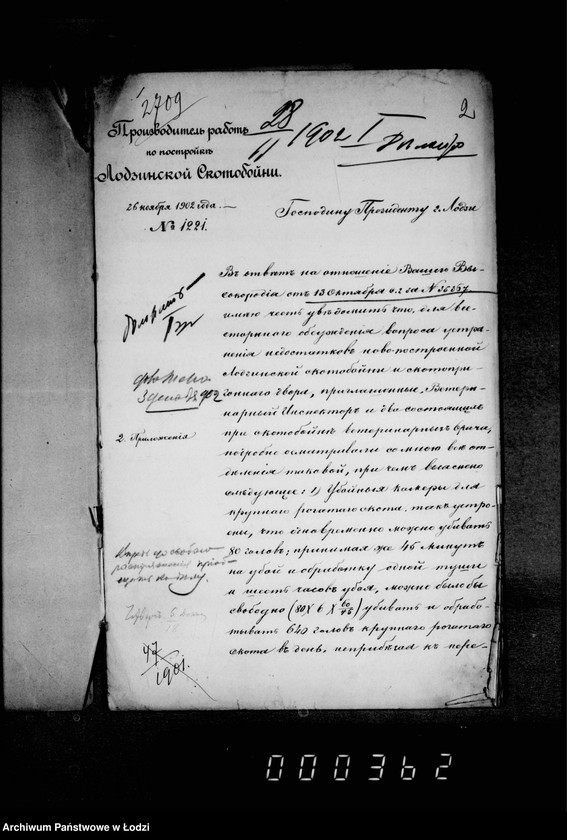 2709
2
Производитель работъ
по постройкѣ
Лодзинской Скотобойни.
28/11 1902 I
26 ноября 1902 года.
№ 1221.
Господину Президенту г. Лодзи
Въ отвѣтъ на отношеніе Вашего Вы-
сокородія отъ 13 Октября с.г. за №
имѣю честь увѣдомить что, для вы-
сторонняго обсужденія вопроса устра-
ненія недостатковъ ново-построенной
Лодзинской скотобойни и скотопри-
гоннаго двора, приглашенные, Ветери-
нарный Инспекторъ и два состоящихъ
при скотобойнѣ ветеринарныхъ врача,
подробно осматривали со мною всѣ от-
дѣленія таковой, при чемъ выяснено
слѣдующее: 1) Убойныя камеры для
крупнаго рогатаго скота, такъ устро-
ены, что одновременно можно убивать
80 головъ; принимая же 45 минутъ
на убой и обработку одной туши
и шесть часовъ убоя, можно было бы
свободно (80 X 6 X 60/45) убивать и обрабо-
тывать 640 головъ крупнаго рогатаго
скота въ день, не прибѣгая къ пере-
2 Приложенія
47
1901.
000362
Archiwum Państwowe w Łodzi